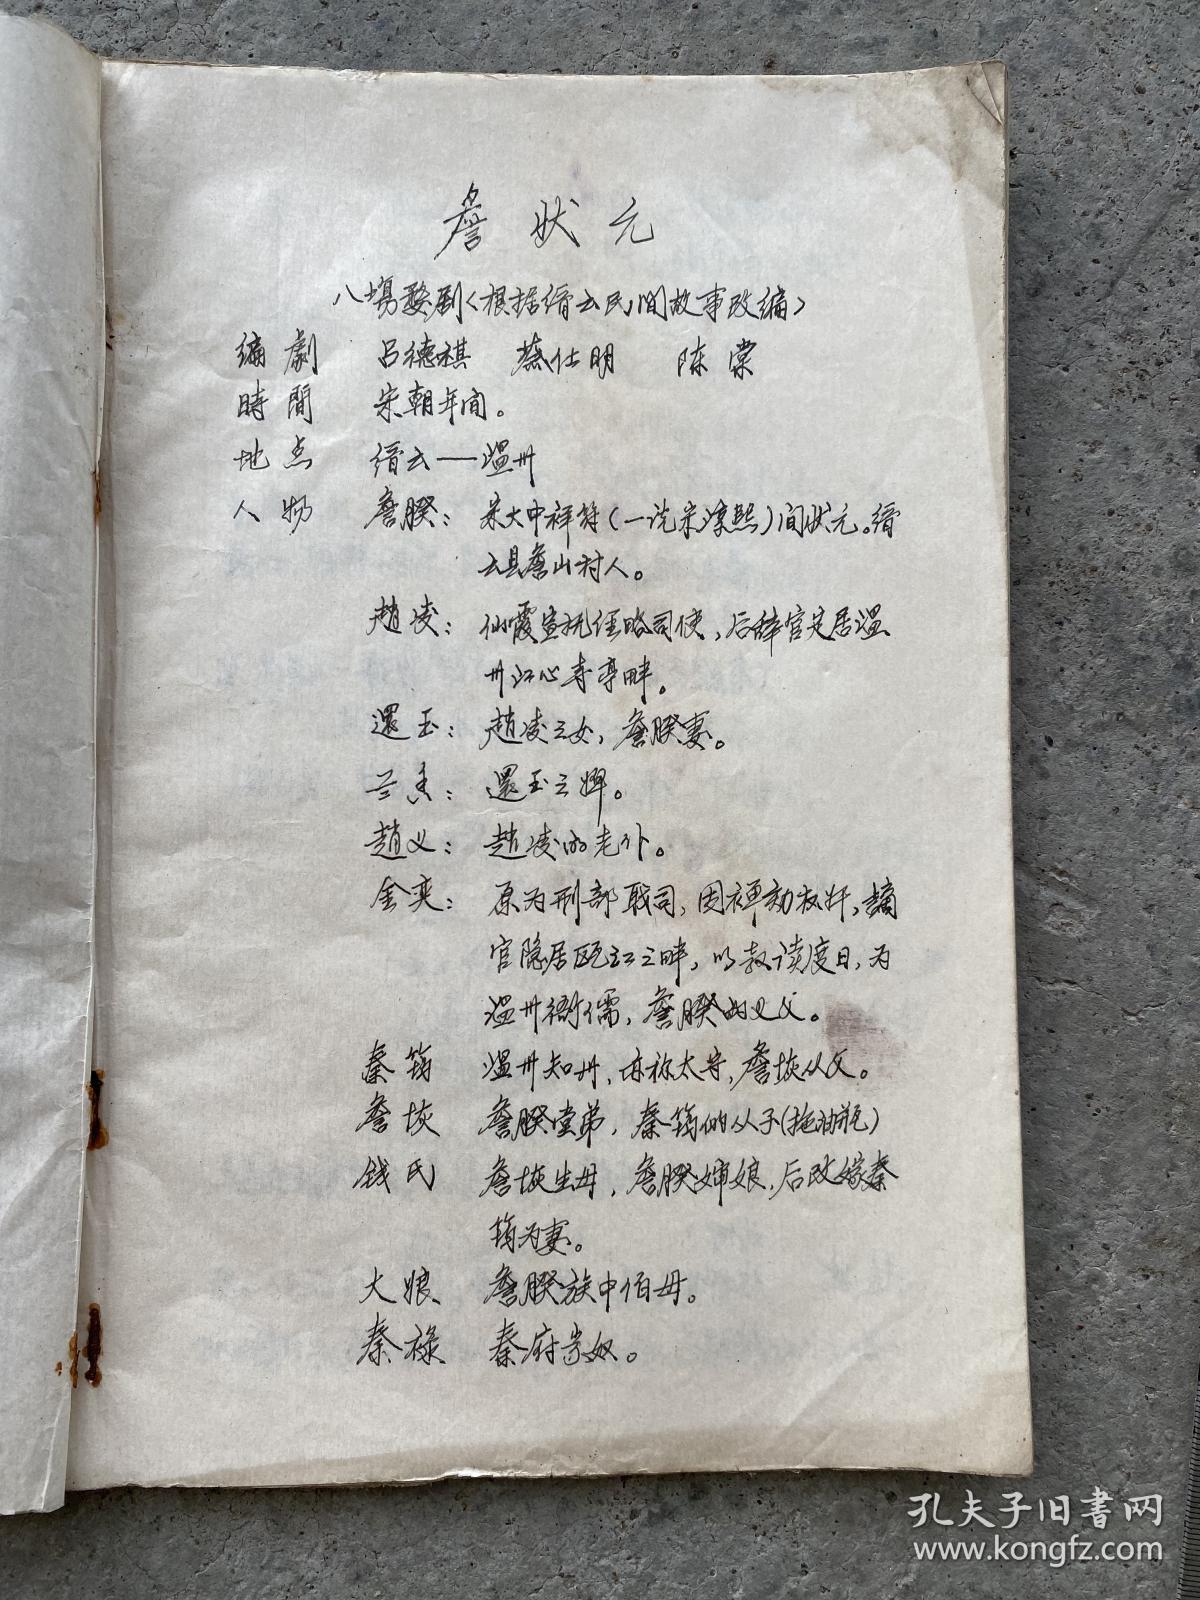 詹狀元
八場婺剧<根据缙云民间故事改编>
编劇 吕德祺 蔡仕明 陈棠
時間 宋朝年间。
地点 缙云——温州
人物 詹睽：宋大中祥符(一说宋淳熙)间状元。缙
云县詹山村人。
趙凌：仙霞宣抚经略司使，后辞官定居温
州江心寺亭畔。
還玉：趙凌之女，詹睽妻。
兰香：還玉之婢。
趙义：趙凌的老仆。
金奕：原为刑部耿司，因禅劾权奸，谪
官隐居瓯江之畔，以教读度日，为
温州衙儒，詹睽的义父。
秦筠 温州知州，亦称太守，詹垓从父。
詹垓 詹睽堂弟，秦筠的从子(拖油瓶)
钱氏 詹垓生母，詹睽婶娘，后改嫁秦
筠为妻。
大娘 詹睽族中伯母。
秦禄 秦府豪奴。
孔夫子旧書网
www.kongfz.com